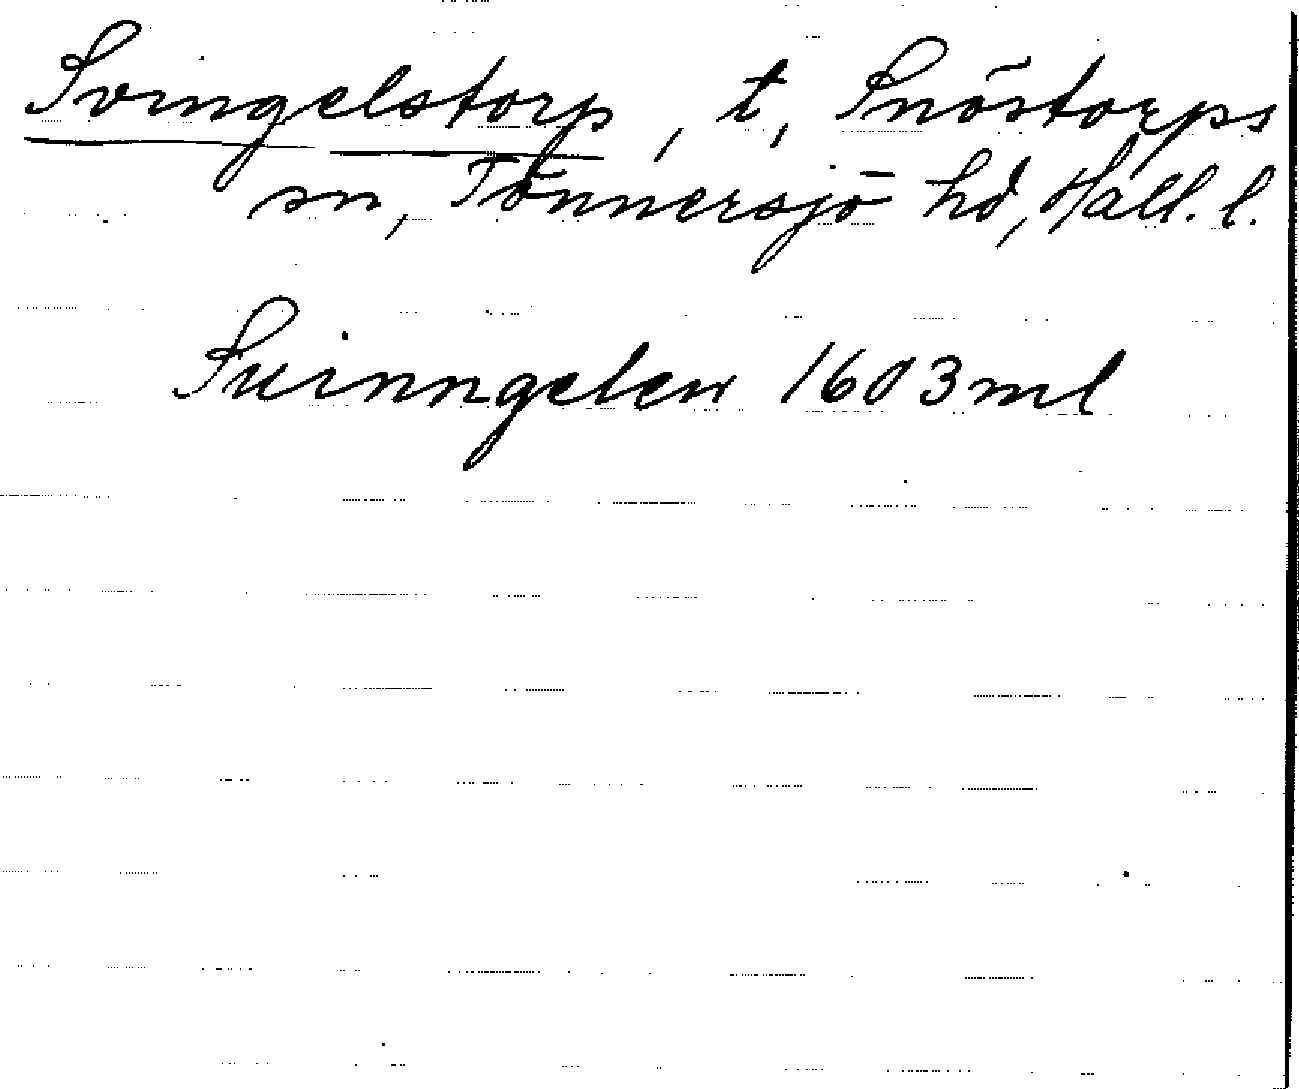 Svingelstorp, t, Snöstorps
sn, Tönnersjö hd, Hall. l.
Suinngelew 1603 ml